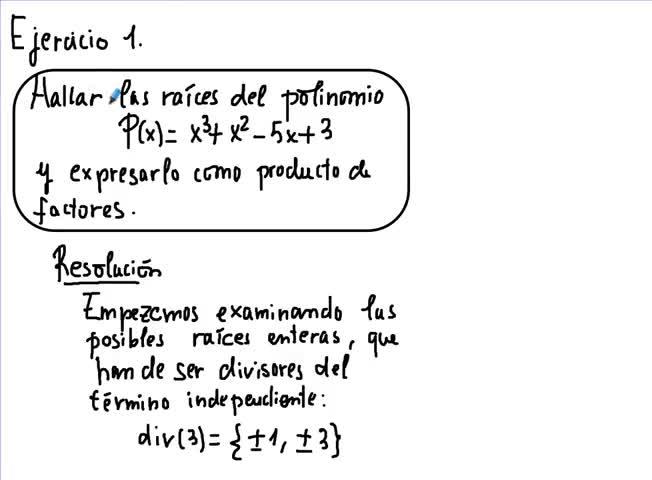 Ejercicio 1.
Hallar las raíces del polinomio
P(x)= x³+ x² - 5x + 3
y expresarlo como producto de
factores.
Resolución
Empezamos examinando las
posibles raíces enteras, que
han de ser divisores del
término independiente:
div(3) = {±1, ±3}